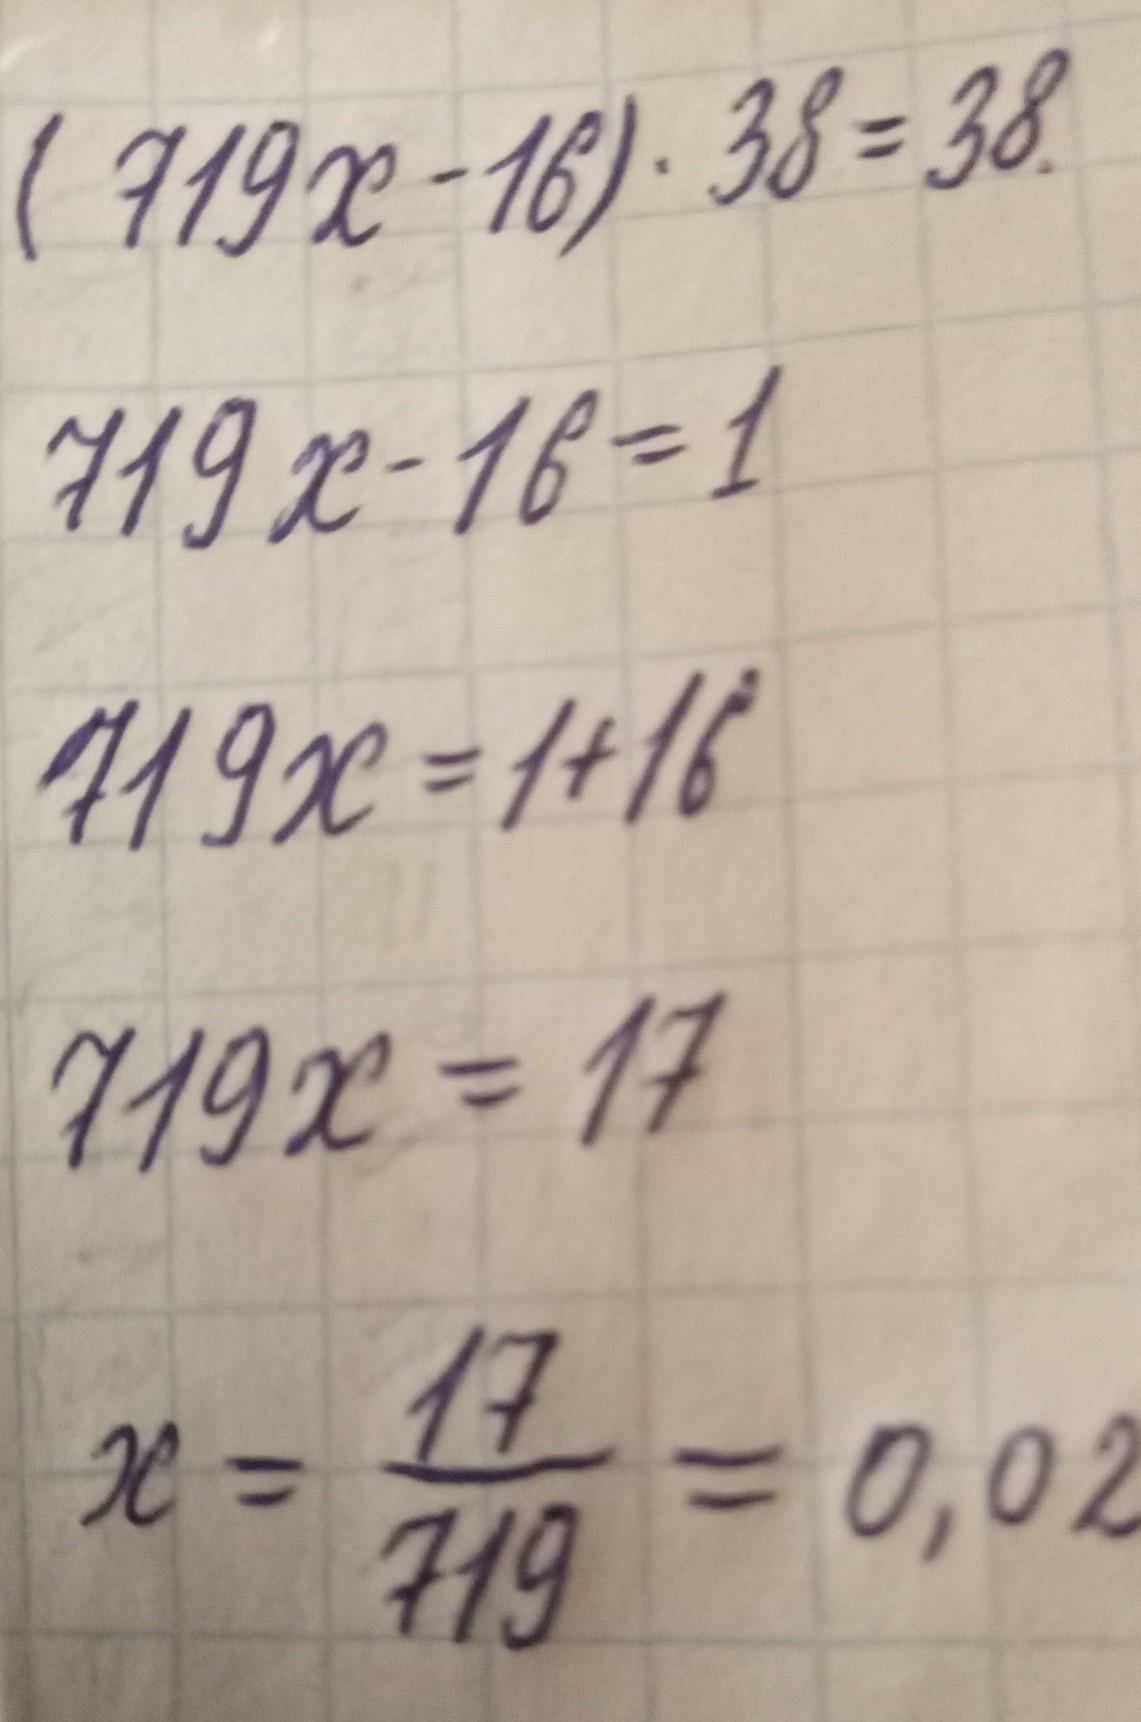 (719x-16)·38=38.
719x-16=1
719x=1+16
719x=17
x=17/719=0,02